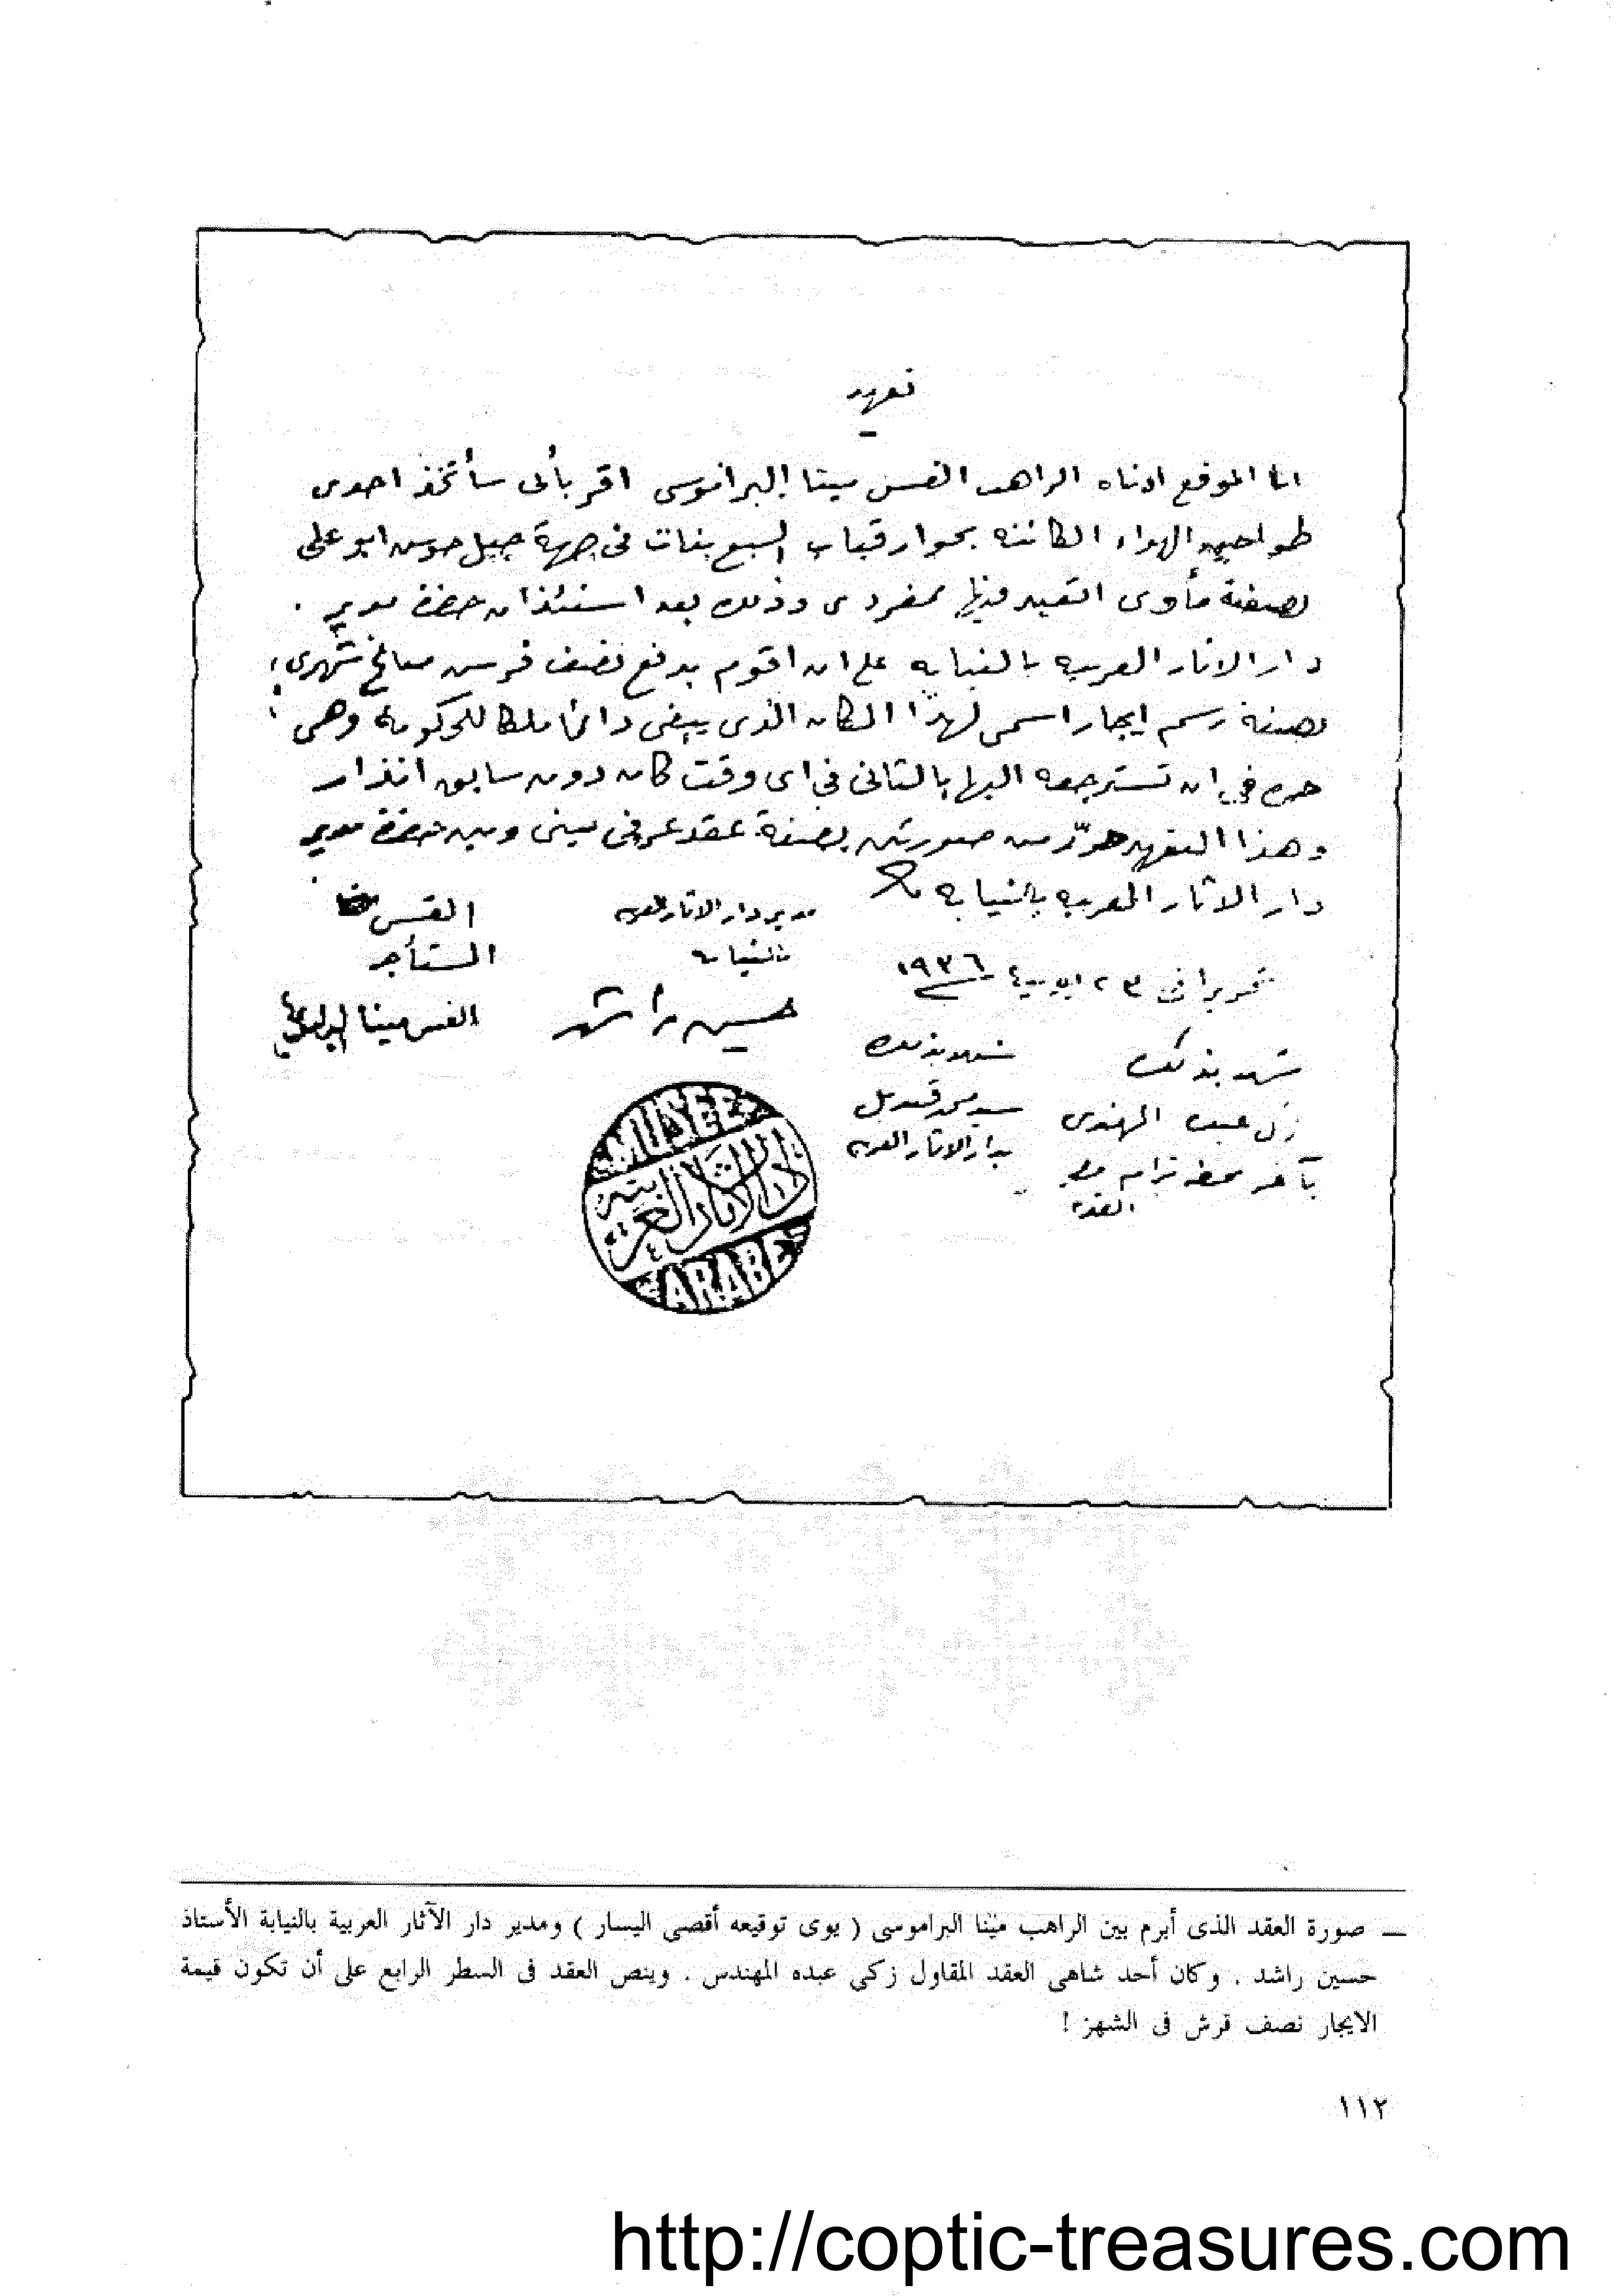 تعهد
انا الموقع ادناه الراهب القس مينا البراموسى اقر بأنى سأتخذ احدى
طواحين الهواء الكائنه بجوار قباب السبع بنات فى جهة جبل ابو على
بصفة مأوى اتعبد فيها بمفردى وذلك بعد استئذان حضرة مدير
دار الاثار العربيه بالنيابه على ان اقوم بدفع نصف قرش صاغ شهرى
بصفة رسم ايجار اسمى لهذا المكان الذى يبقى دائما ملكا للحكومة وهى
حره فى ان تسترجعه اليها بالتالى فى اى وقت كان دون سابق انذار
وهذا التعهد حرّر من صورتين بصفة عقد عرفى بينى وبين حضرة مدير
دار الاثار العربيه بالنيابه
مدير دار الاثار العربيه
بالنيابه
حسين راشد
القس
المستأجر
القس مينا البراموسى
تحريرا فى ٢٣ ١٩٣٦
شهد بذلك
زكى عبده المهندس
شهد بذلك
سيد محمد قنديل
بدار الاثار العربيه
MUSEE
دار الآثار العربية
ARABE
— صورة العقد الذى أبرم بين الراهب مينا البراموسى ( يوى توقيعه أقصى اليسار ) ومدير دار الآثار العربية بالنيابة الأستاذ
حسين راشد . وكان أحد شاهى العقد المقاول زكى عبده المهندس . وينص العقد فى السطر الرابع على أن تكون قيمة
الايجار نصف قرش فى الشهز !
١١٢
http://coptic-treasures.com